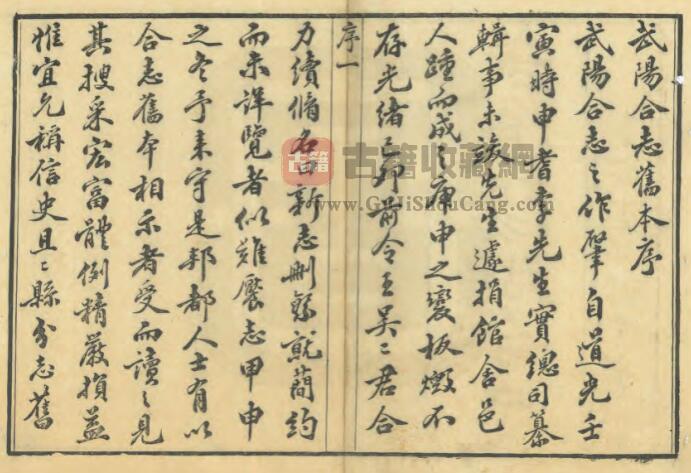 武陽合志舊本序
武陽合志之作肇自道光壬
寅時申耆李先生實總司纂
輯事未竣先生遽捐館舍邑
人踵而成之庚申之變板燬不
存光緒己卯前令王吴二君合
序一
力續脩名曰新志刪繁就簡約
而未詳覽者似難饜志甲申
之冬予来守是邦都人士有以
合志舊本相示者受而讀之見
其搜采宏富體例精嚴損益
惟宜允稱信史且二縣分志舊
古籍收藏網
www.GuJiShouCang.com
古籍